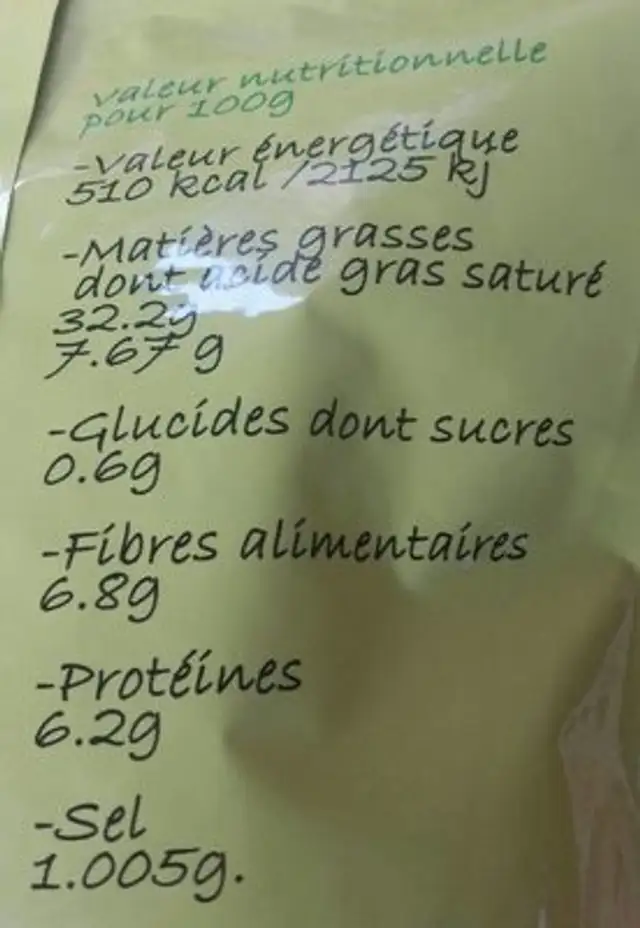 valeur nutritionnelle
pour 100g
-Valeur énergétique
510 kcal /2125 kj
-Matières grasses
dont acide gras saturé
32.2g
7.67 g
-Glucides dont sucres
0.6g
-Fibres alimentaires
6.8g
-Protéines
6.2g
-Sel
1.005g.